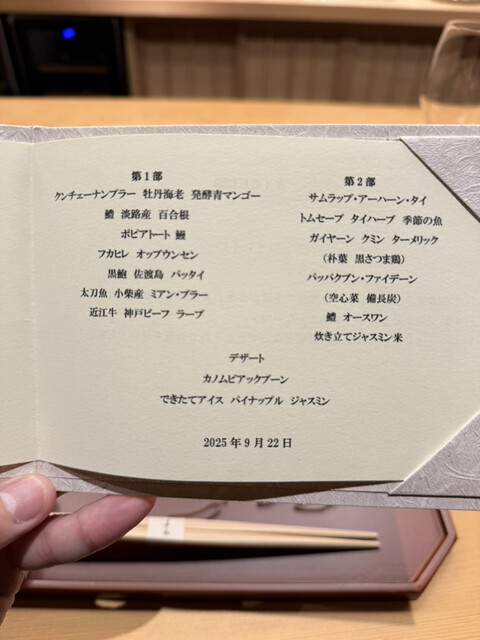 第1部
クンチェーナンプラー 牡丹海老 発酵青マンゴー
鱧 淡路産 百合根
ポピアトート 鰻
フカヒレ オップウンセン
黒鮑 佐渡島 パッタイ
太刀魚 小柴産 ミアン・プラー
近江牛 神戸ビーフ ラープ
第2部
サムラップ・アーハーン・タイ
トムセーブ タイハーブ 季節の魚
ガイヤーン クミン ターメリック
（朴葉 黒さつま鶏）
パッパクブン・ファイデーン
（空心菜 備長炭）
鱧 オースワン
炊き立てジャスミン米
デザート
カノムピアックプーン
できたてアイス パイナップル ジャスミン
2025年9月22日